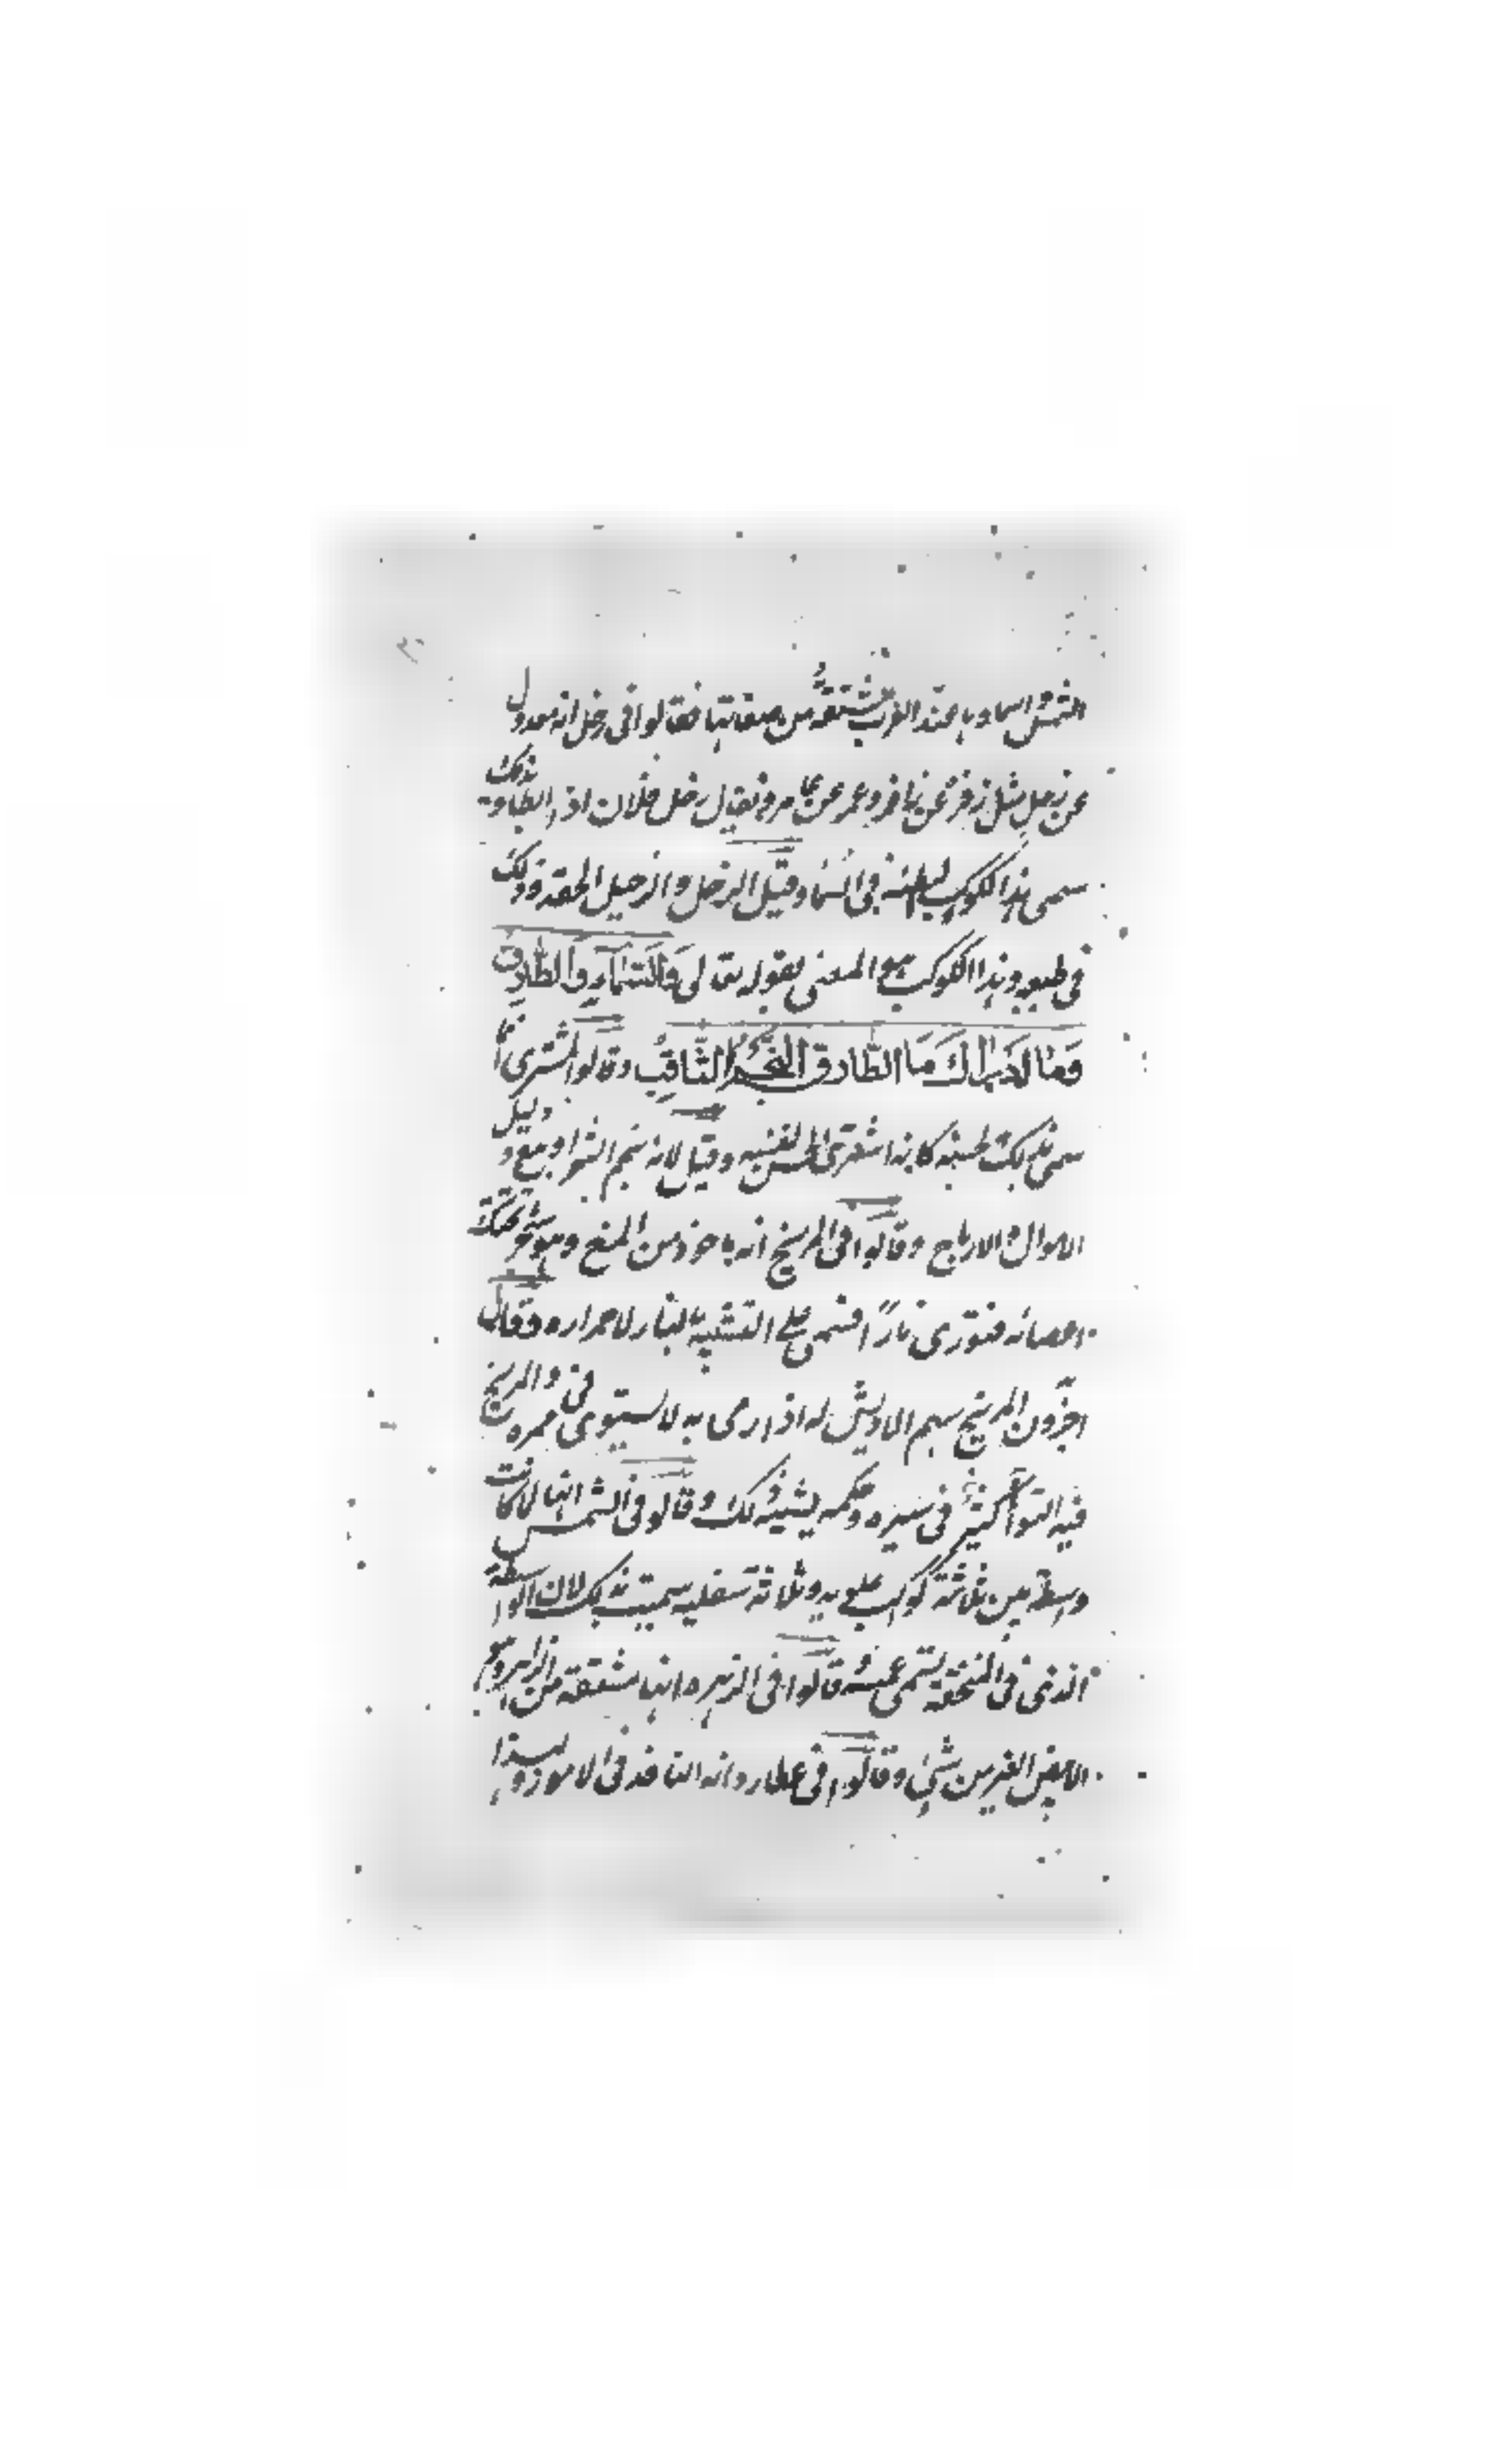 الشمس اسماوها عند العرب مشتقة من صفاتها فقالوا فى زحل انه معدول
عن زحل مثل زفر عن زافر وعمر عن عامر ويقال زحل فلان اذا ابطا وبذلك
سمى هذا الكوكب لبطئه فى السما وقيل الزحل والزحيل الحقد وذلك
فى طبعه وهذا الكوكب هو المعنى بقوله تعالى وَالسَّمَآءِ وَالطَّارِقِ
وَمَا اَدْرٰاكَ مَا الطَّارِق النَّجْمُ الثَّاقِبُ وقالوا المشترى انما
سمى بذلك لحسنه كانه اشترى الحسن لنفسه وقيل لانه نجم الشرا والبيع ودليل
الاموال والارباح وقالوا فى المريخ انه ماخوذ من المرخ وهو شجر تحتك
اغصانه فتورى نارًا فسمى على التشبيه بالنار لاحمراره وقال
اخرون المريخ سهم لا ريش له اذا رمى به لا يستوى فى ممره والمريخ
فيه التوآ كثير فى سيره وحكمه يشبه ذلك وقالوا فى الشمس انها لما كانت
واسطة بين ثلاثة كواكب علويه وثلاثة سفليه سميت بذلك لان الواسطة
الذى فى المخنقة يسمى شمسة قالوا فى الزهره انها مشتقة من الزاهر وهو
الابيض النير من شئ وقالوا فى عطارد انه النافذ فى الامور ولهذا